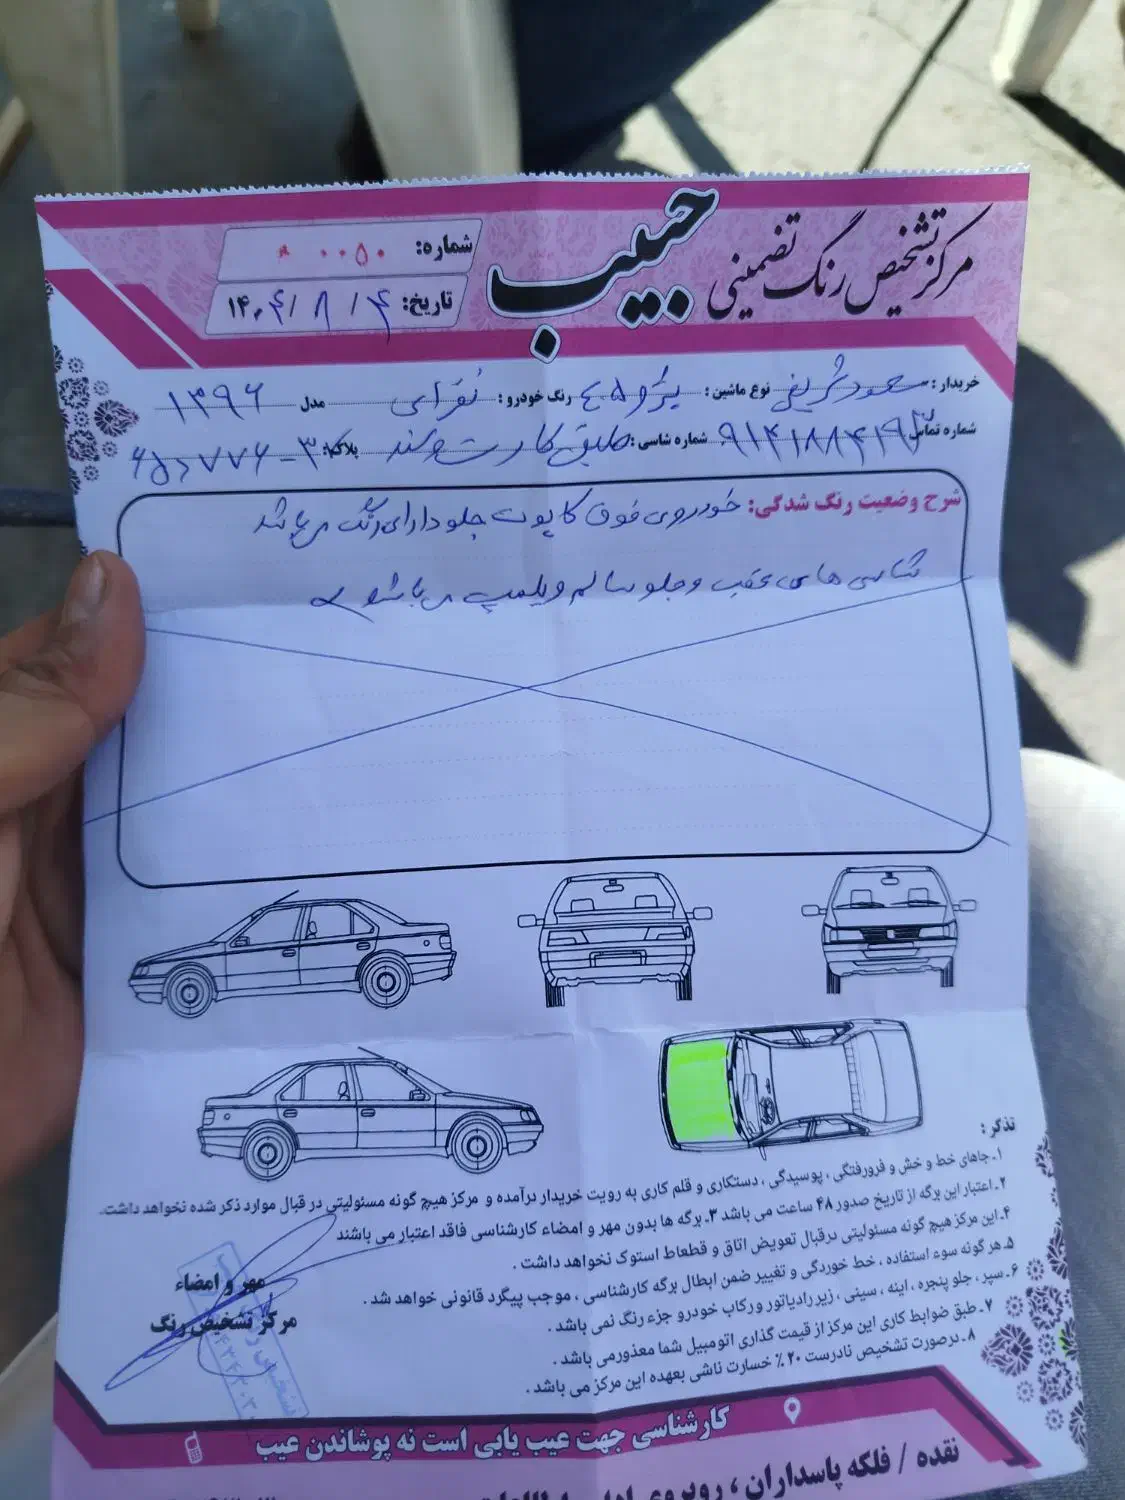 مرکز تشخیص رنگ تضمینی
حبیب
شماره: ۰۰۵۰
تاریخ: ۱۴۰۴/۸/۴
خریدار: نوع ماشین: پژو ۴۰۵ رنگ خودرو: نقره‌ای مدل ۱۳۹۶
شماره تماس شماره شاسی: طبق کارت و سند پلاک:
شرح وضعیت رنگ شدگی: خودروی فوق کاپوت جلو دارای رنگ می باشد
شاسی های عقب و جلو سالم و پلمپ می باشد
تذکر:
۱ـ جاهای خط و خش و فرورفتگی، پوسیدگی، دستکاری و قلم کاری به رویت خریدار درآمده و مرکز هیچ گونه مسئولیتی در قبال موارد ذکر شده نخواهد داشت.
۲ـ اعتبار این برگه از تاریخ صدور ۴۸ ساعت می باشد ۳ـ برگه ها بدون مهر و امضاء کارشناسی فاقد اعتبار می باشند
۴ـ این مرکز هیچ گونه مسئولیتی در قبال تعویض اتاق و قطعاط استوک نخواهد داشت.
۵ـ هر گونه سوء استفاده، خط خوردگی و تغییر ضمن ابطال برگه کارشناسی، موجب پیگرد قانونی خواهد شد.
۶ـ سپر، جلو پنجره، اینه، سینی، زیر رادیاتور و رکاب خودرو جزء رنگ نمی باشد.
۷ـ طبق ضوابط کاری این مرکز از قیمت گذاری اتومبیل شما معذور می باشد.
۸ـ درصورت تشخیص نادرست ۲۰٪ خسارت ناشی بعهده این مرکز می باشد.
مهر و امضاء
مرکز تشخیص رنگ
کارشناسی جهت عیب یابی است نه پوشاندن عیب
نقده / فلکه پاسداران، روبروی